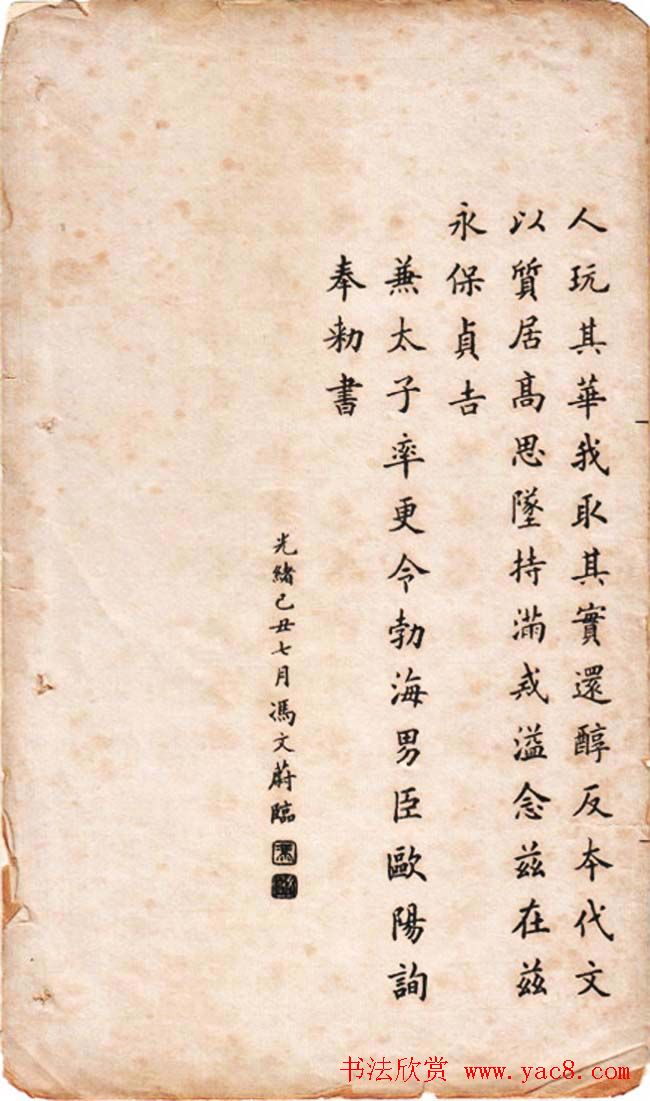 人玩其華我取其實還醇反本代文
以質居高思墜持滿戒溢念茲在茲
永保貞吉
兼太子率更令勃海男臣歐陽詢
奉勑書
光緒己丑七月馮文蔚臨
馮
书法欣赏 www.yac8.com